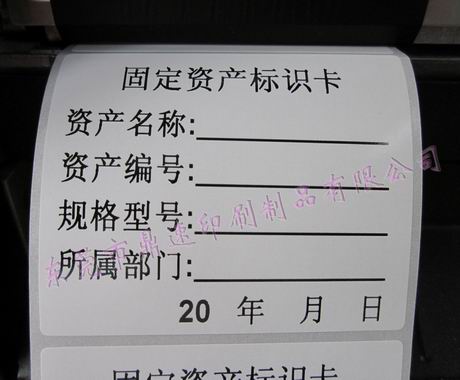 固定资产标识卡
资产名称:
资产编号:
规格型号:
所属部门:
20 年 月 日
东莞市鼎速印刷制品有限公司
固定资产标识卡